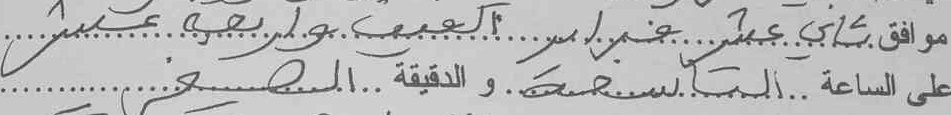 موافق ثاني عشر فبراير ألفين وأربعة عشر
على الساعة التاسعة و الدقيقة الصفر